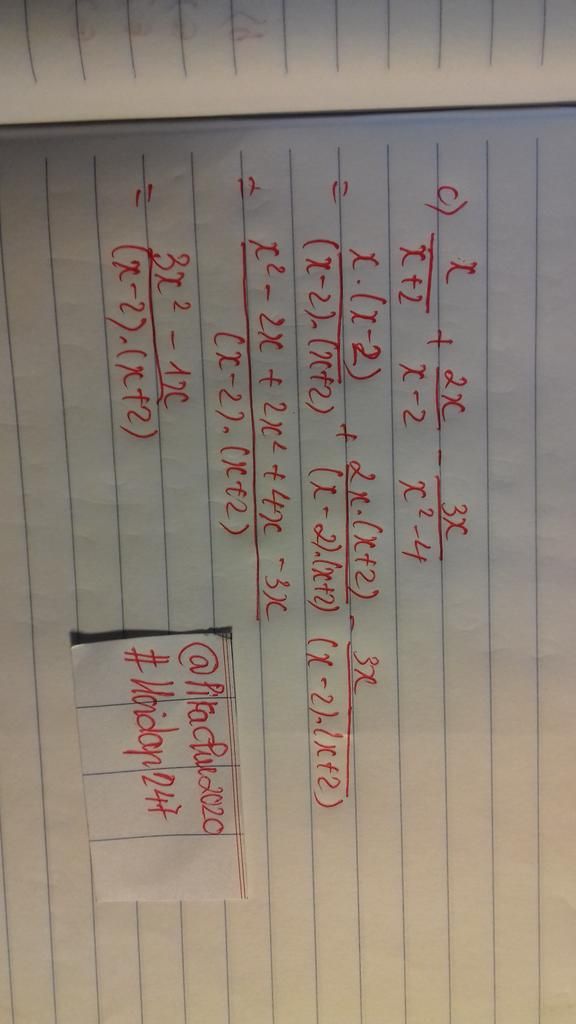 c) x/(x+2) + 2x/(x-2) - 3x/(x²-4)
= x.(x-2)/((x-2).(x+2)) + 2x.(x+2)/((x-2).(x+2)) - 3x/((x-2).(x+2))
= (x² - 2x + 2x² + 4x - 3x)/((x-2).(x+2))
= (3x² - 1x)/((x-2).(x+2))
@Pikachue2020
#Hoidap247